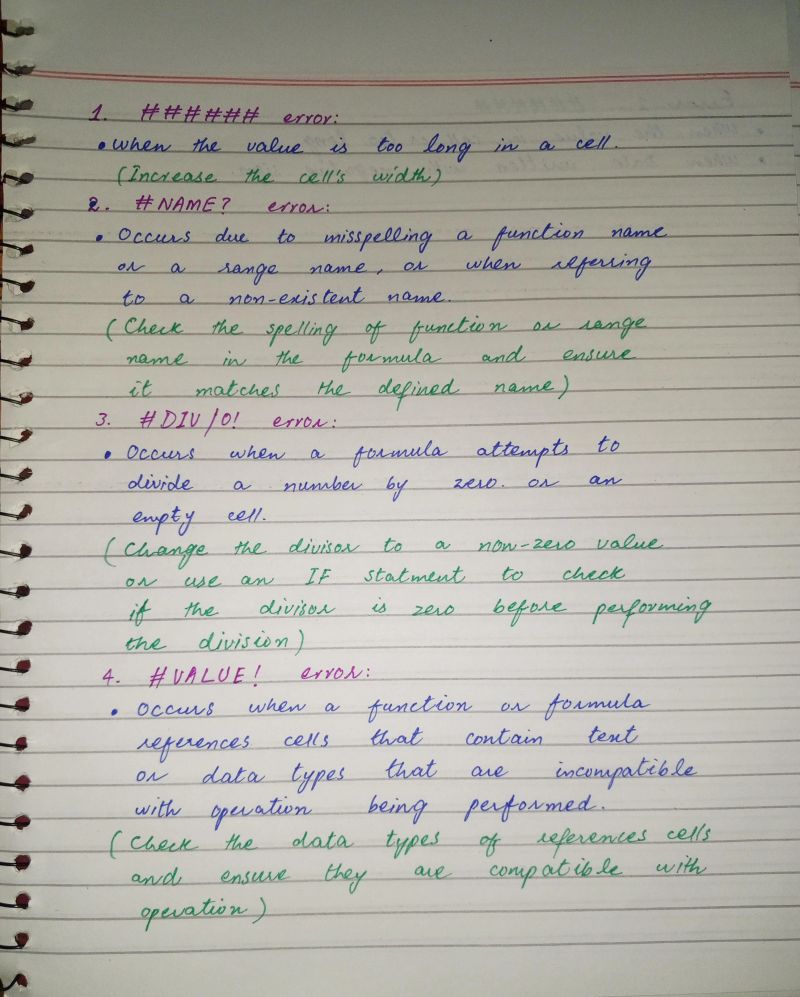 1. ###### error:
• when the value is too long in a cell.
(Increase the cell's width)
2. #NAME? error:
• Occurs due to misspelling a function name
or a range name, or when referring
to a non-existent name.
(Check the spelling of function or range
name in the formula and ensure
it matches the defined name)
3. #DIV/0! error:
• Occurs when a formula attempts to
divide a number by zero. or an
empty cell.
(Change the divisor to a non-zero value
or use an IF statment to check
if the divisor is zero before performing
the division)
4. #VALUE! error:
• Occurs when a function or formula
references cells that contain text
or data types that are incompatible
with operation being performed.
(Check the data types of references cells
and ensure they are compatible with
operation)